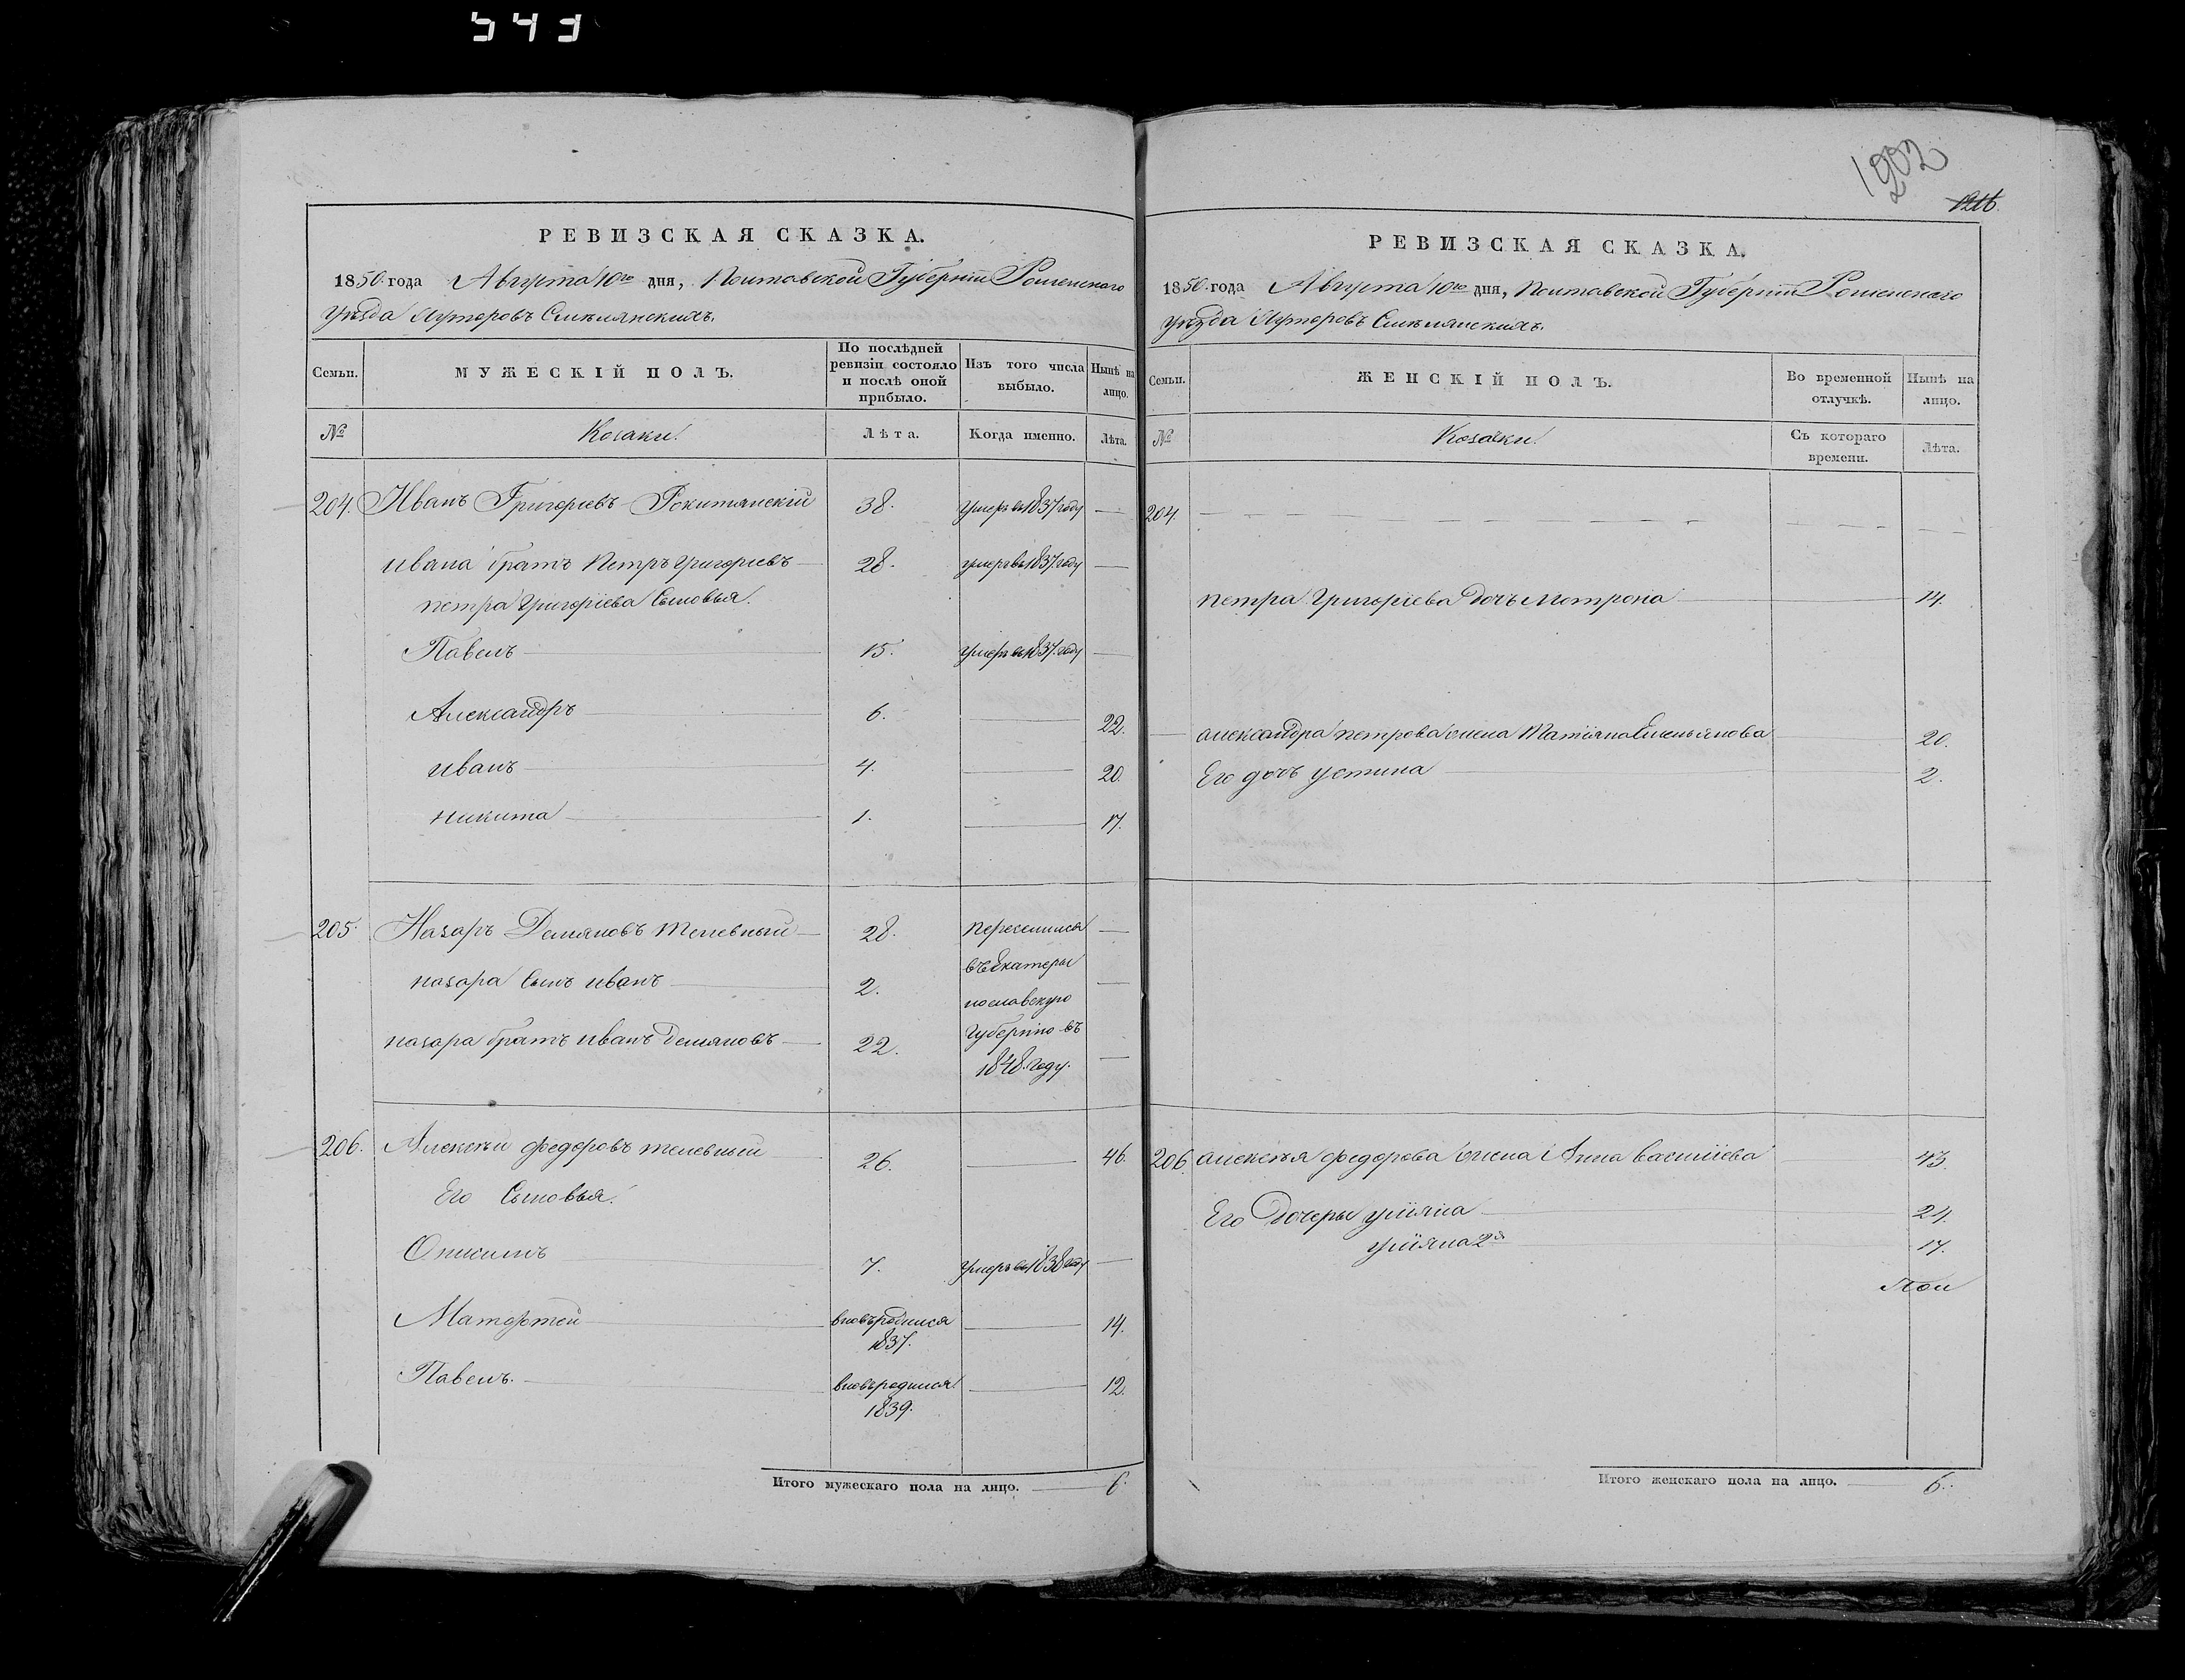 543
РЕВИЗСКАЯ СКАЗКА.
1850 года Августа 10го дня, Полтавской Губерніи Роменского
уѣзда Хуторовъ Смѣлянскихъ.
Семьи.
МУЖЕСКІЙ ПОЛЪ.
По послѣдней
ревизіи состояло
и послѣ оной
прибыло.
Изъ того числа
выбыло.
Нынѣ на
лицо.
№
Козаки.
Лѣта.
Когда именно.
Лѣта.
204. Иванъ Григорьевъ Рокитянскій 38. умеръ въ 1837 году —
ивана братъ Петръ Григорьевъ — 28. умеръ въ 1837 году —
петра Григоріева Сыновья.
Павелъ — 15. умеръ въ 1837. году —
Александръ — 6. — 22.
иванъ — 4. — 20
никита — 1. — 17.
205. Назаръ Демяновъ Телевный — 28. переселился —
въ Екатери
назара Сынъ иванъ — 2. —
нославскую
Губернію въ
назара братъ иванъ Демяновъ — 22. —
1848. году.
206. Алексѣй федоровъ телевный — 26. — 46.
Его Сыновья.
Онисимъ — 7. умеръ въ 1838 году —
Матофтей — вновь родился — 14.
1837.
Павелъ. — вновь родился — 12.
1839.
Итого мужескаго пола на лицо. — 6.
1202
1216.
РЕВИЗСКАЯ СКАЗКА.
1850 года Августа 10го дня, Полтавской Губерніи Роменского
уѣзда Хуторовъ Смѣлянскихъ.
Семьи.
ЖЕНСКІЙ ПОЛЪ.
Во временной
отлучкѣ.
Нынѣ на
лицо.
№
Козачки.
Съ котораго
времени.
Лѣта.
204. — — —
петра Григоріева Дочь Мотрона — 14.
александра петрова жена Матіяна Емельянова — 20.
Его дочь устина — 2.
206. алексѣя федорова жена Анна василіева — 43.
Его Дочеры уліяна — 21.
уліяна 2я — 17.
Итого женскаго пола на лицо. — 6.